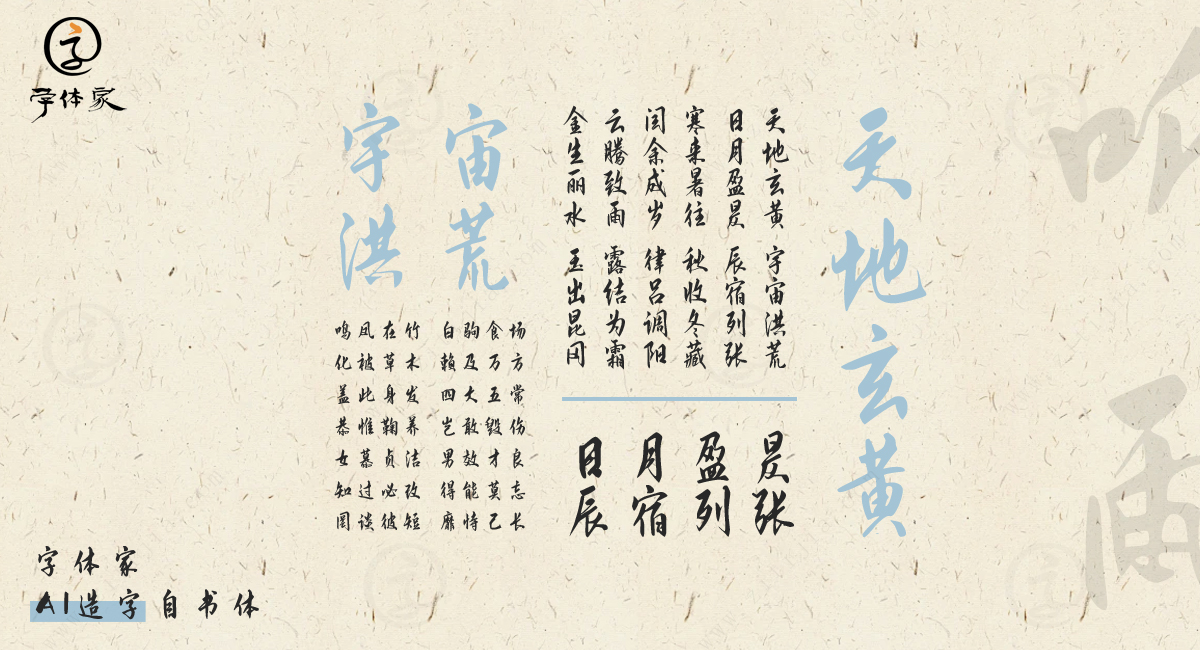 字体家
天地玄黄
宇宙
洪荒
天地玄黄 宇宙洪荒
日月盈昃 辰宿列张
寒来暑往 秋收冬藏
闰余成岁 律吕调阳
云腾致雨 露结为霜
金生丽水 玉出昆冈
日月盈昃
辰宿列张
鸣凤在竹 白驹食场
化被草木 賴及万方
盖此身发 四大五常
恭惟鞠养 岂敢毁伤
女慕贞洁 男效才良
知过必改 得能莫忘
罔谈彼短 靡恃己长
字体家
AI造字自书体